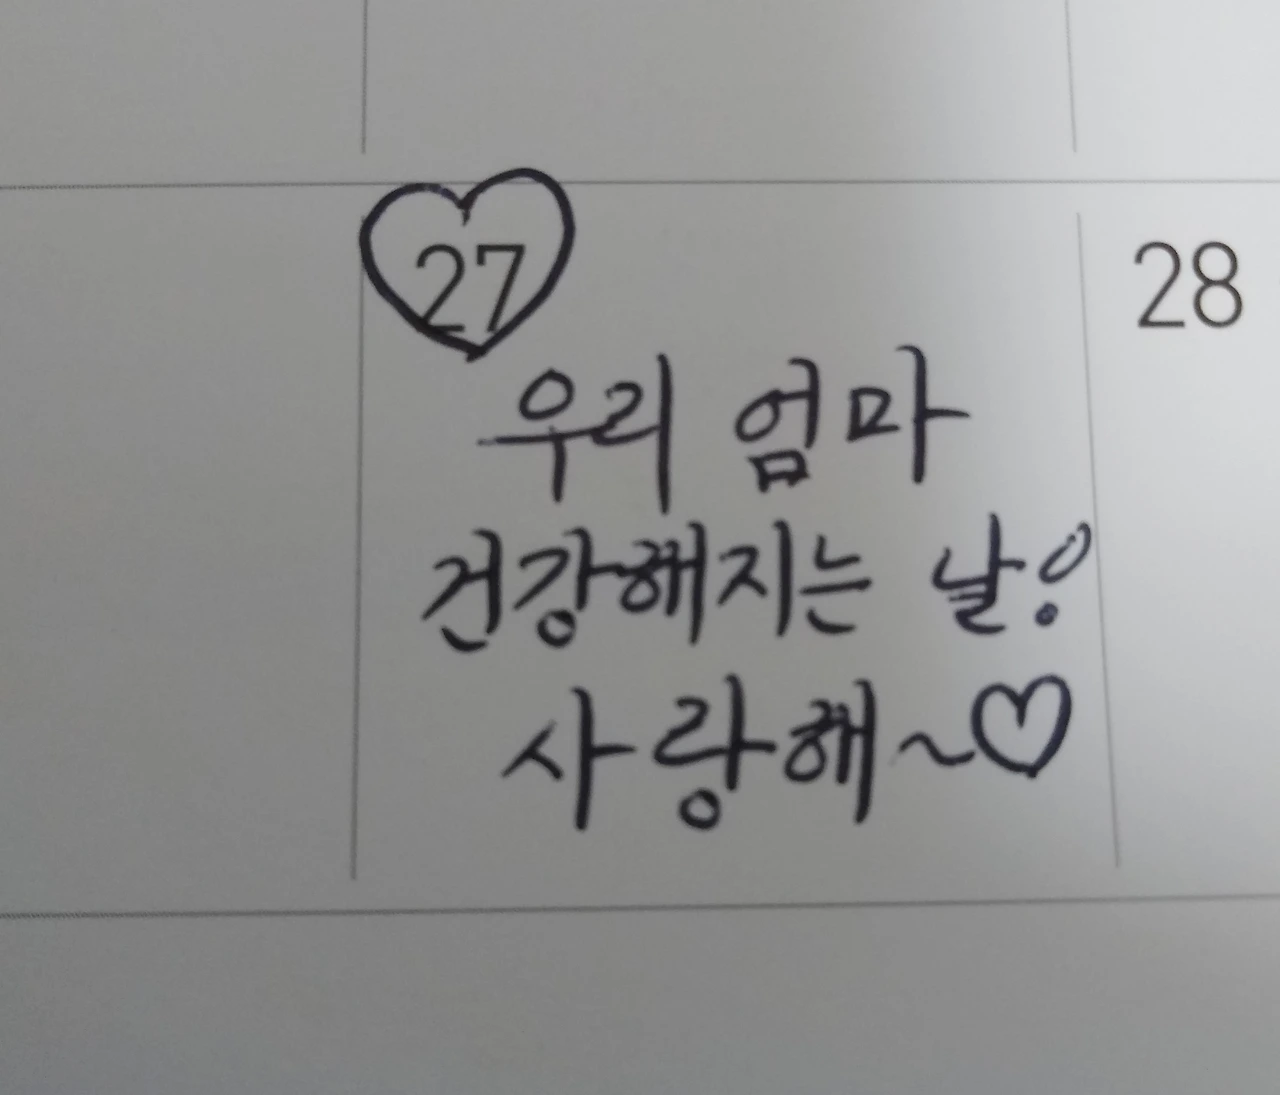 27
28
우리 엄마
건강해지는 날!
사랑해~♡